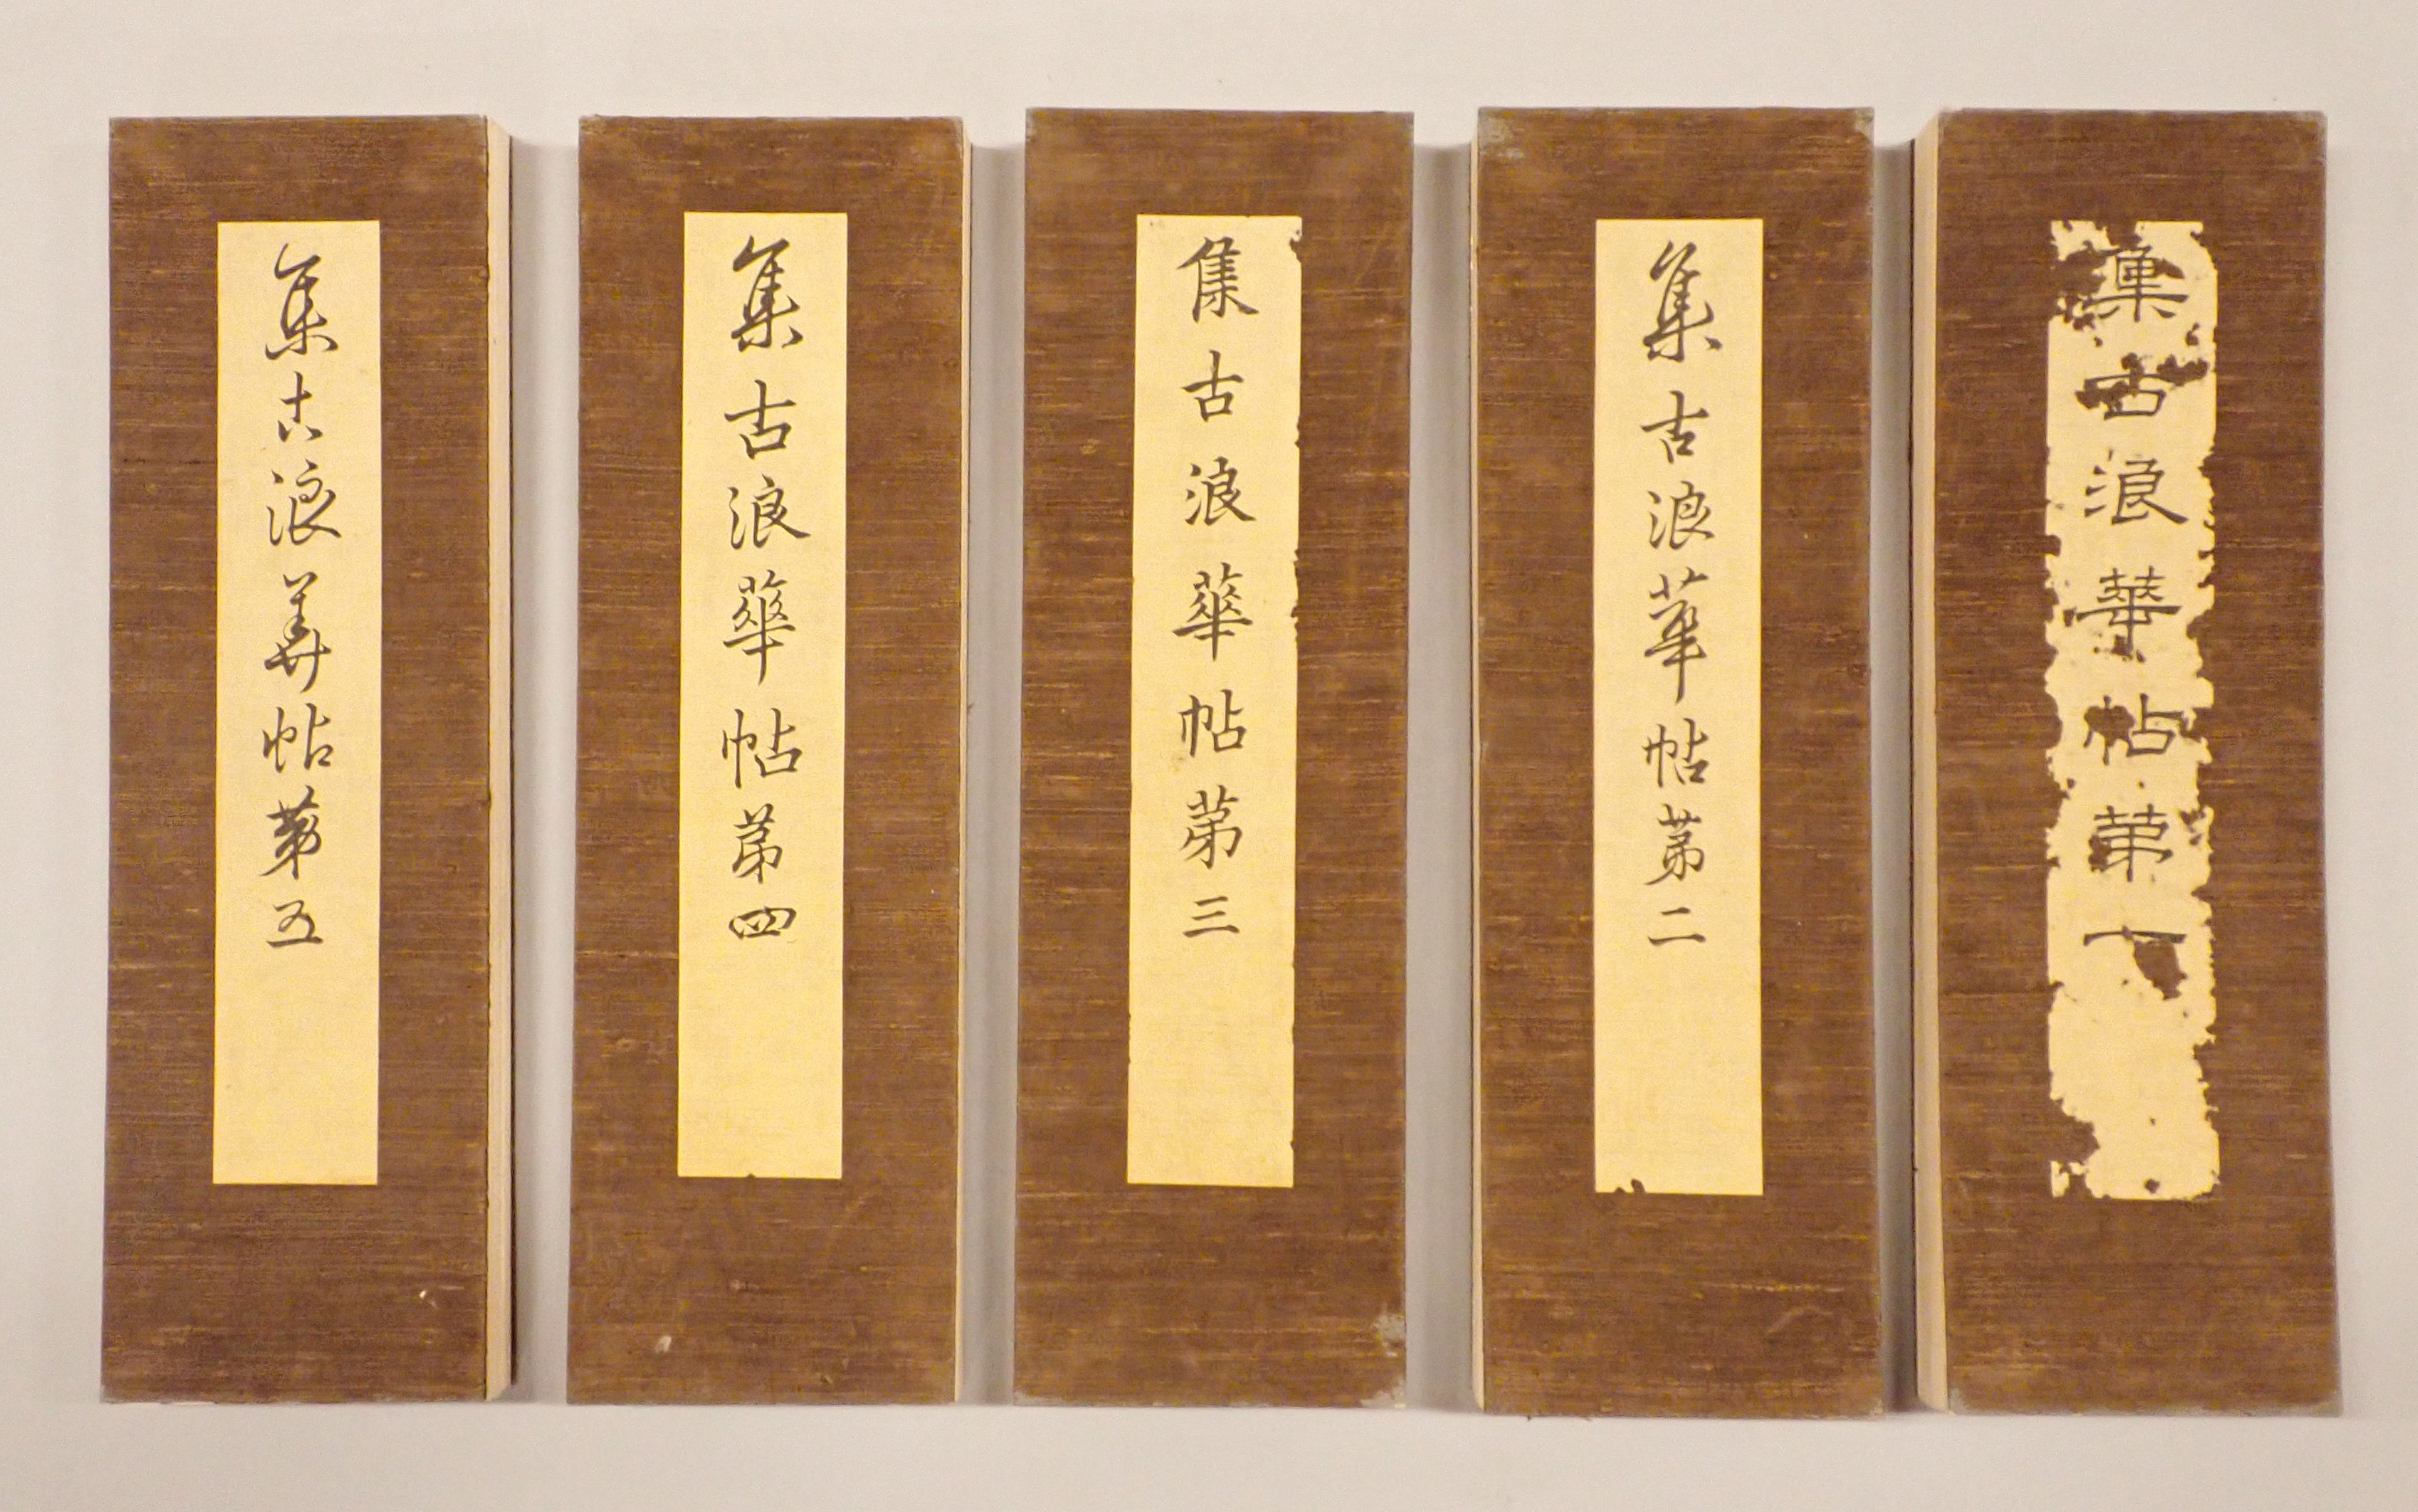 集古浪華帖第一
集古浪華帖第二
集古浪華帖第三
集古浪華帖第四
集古浪華帖第五